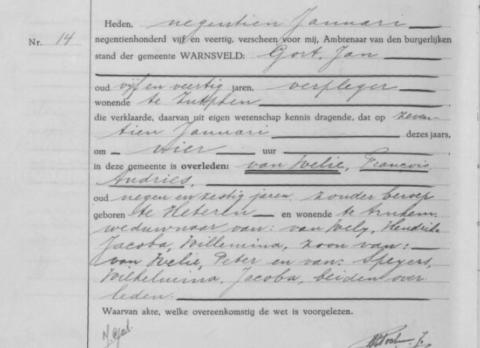 Heden, negentien Januari
negentienhonderd vijf en veertig, verscheen voor mij, Ambtenaar van den burgerlijken
Nr. 14 stand der gemeente WARNSVELD: Gort, Jan
oud vijf en veertig jaren, verpleger
wonende te Zutphen
die verklaarde, daarvan uit eigen wetenschap kennis dragende, dat op zeven-
tien Januari dezes jaars,
om vier uur
in deze gemeente is overleden: van Welie, Francois
Andries,
oud negen en zestig jaren zonder beroep
geboren te Heteren en wonende te Arnhem
weduwnaar van: van Wely, Hendrika
Jacoba, Willemina, zoon van:
van Welie, Peter en van: Speyers,
Wilhelmina, Jacoba, beiden over
leden.
Waarvan akte, welke overeenkomstig de wet is voorgelezen.